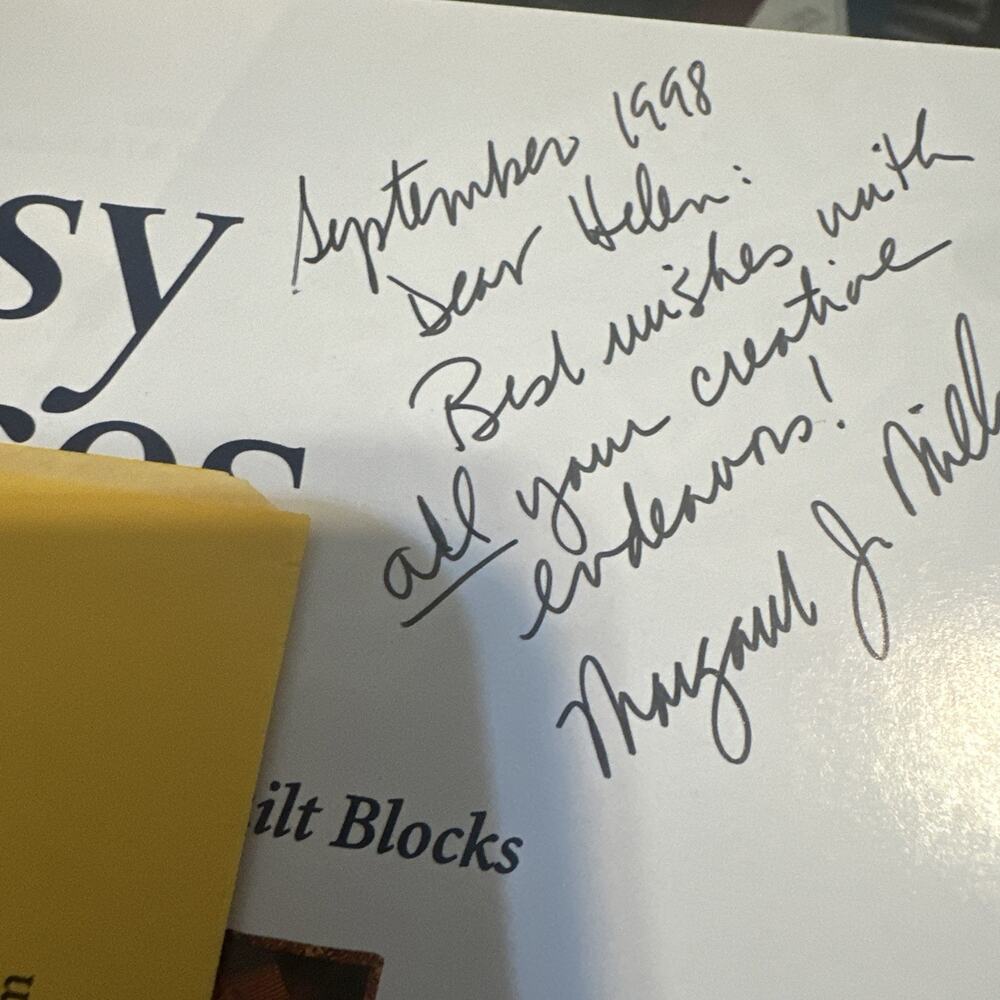 September 1998
Dear Helen:
Best wishes with
all your creative
endeavors!
Margaret J. Mill
sy
ces
ilt Blocks
m